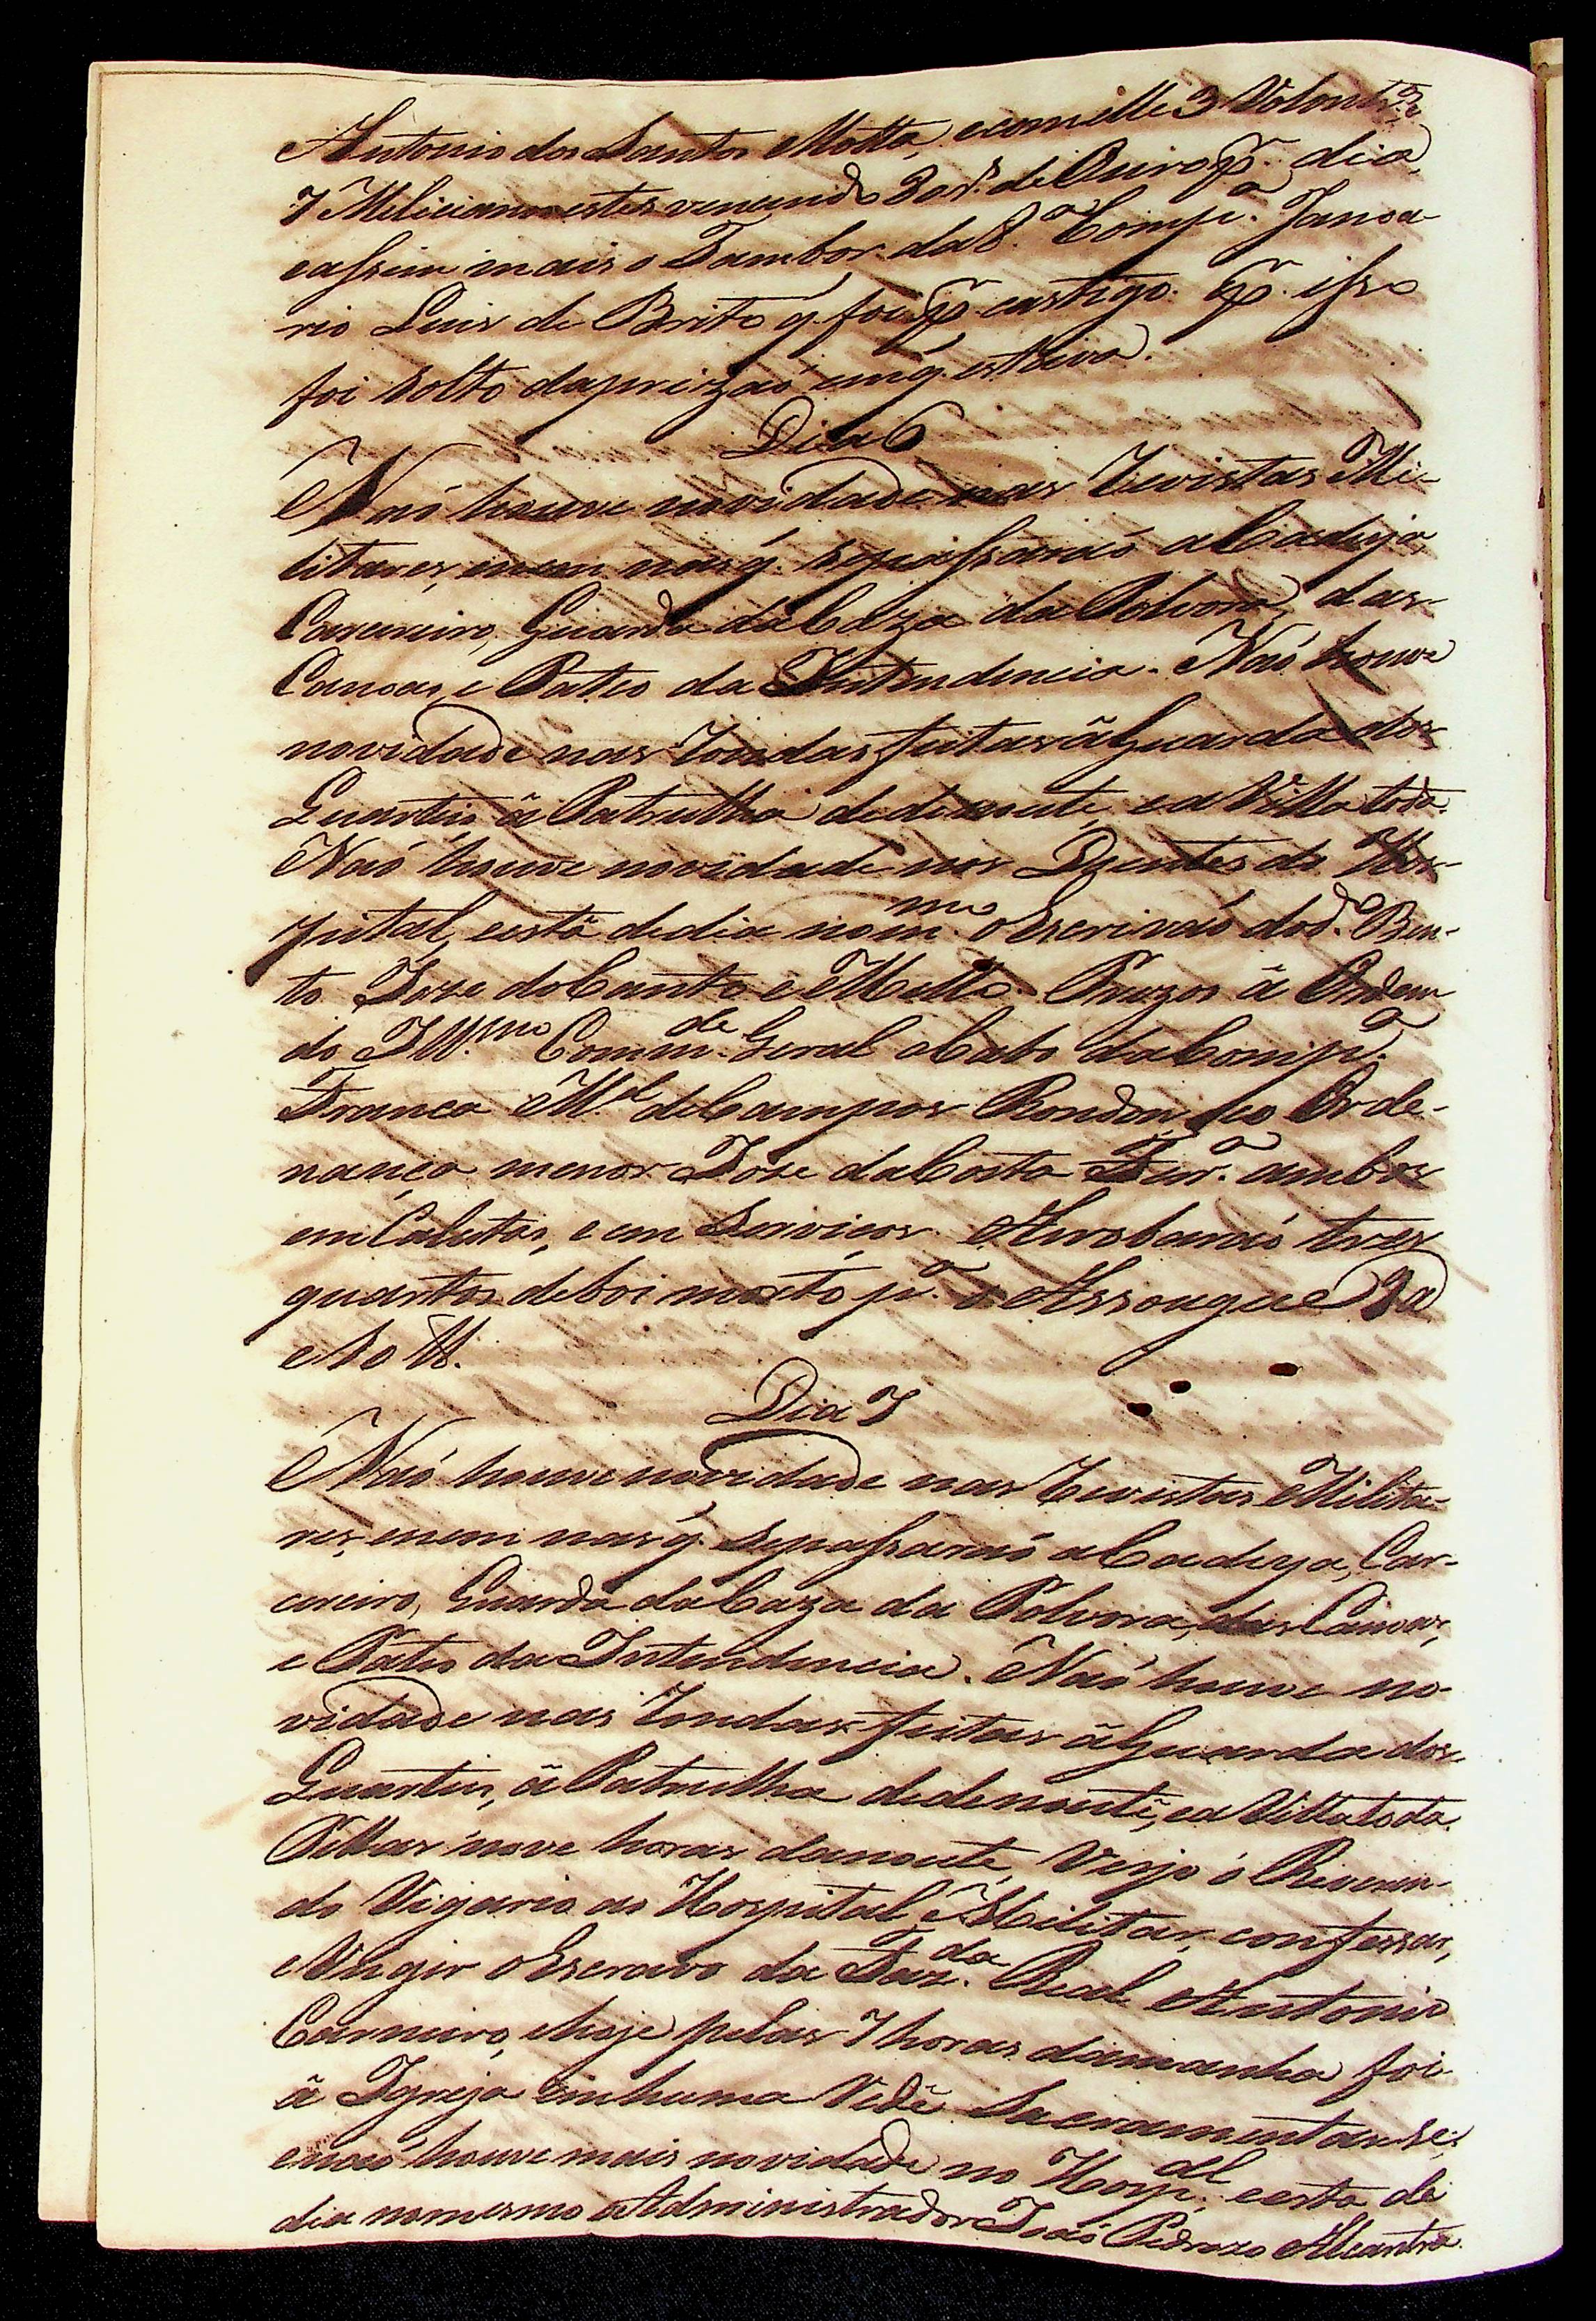 Antonio dos Santos Motta, e com elle 3 Volunt.os
7 Milicianos estes vencendo 30 r.s de Ouro p.r dia,
e assim mais o Tambor da 8.a Comp.a Janoa-
rio Luis de Brito q. foi p.r castigo. P.r isso
foi solto da prizaó em q. estava.
Dia 6
Naó houve novidade nas Revistas Mi-
litares, e nem nas q. se passaraó a Cadeya,
Carcereiro, Guarda da Caza da Polvora, das
Canoas, e Pateo da Intendencia. Naó houve
novidade nas Rondas feitas á Guarda dos
Quarteis á Patrulha de de noute, e a Villa toda.
Naó houve novidade nos Doentes do Hos-
pital, e está de dia no m.mo o Escrivaó do d.o Ben-
to Joze do Canto e Mello. Prezos á Ordem
do Ill.mo Comm.de Geral o Cabo da Comp.a
Franca M.el de Campos Rondon, e o Orde-
nança menor Joze da Costa ambos
em Calutos, e em Serviços. Arrobaraó tres
quartos de boi morto p.a o Assougue 9 @
e 10 lb.
Dia 7
Naó houve novidade nas Revistas Milita-
res, e nem nas q. se passaraó a Cadeya, Car-
cereiro, Guarda da Caza da Polvora, das Canoas,
e Pateo da Intendencia. Naó houve no-
vidade nas Rondas feitas á Guarda dos
Quarteis, á Patrulha de de noute, e a Villa toda.
Pellas nove horas da noute, Veyo o Reveren-
do Vigario ao Hospital Militar, confessar,
e Ungir o Escravo da Faz.da Real Antonio
Carneiro, e hoje pelas 7 horas da manha foi
á Igreja em huma Rede Sacramentar-se,
e naó houve mais novidade no Hosp.al e esta de
dia no mesmo o Administrador Joaó Pedrozo Alcantra.